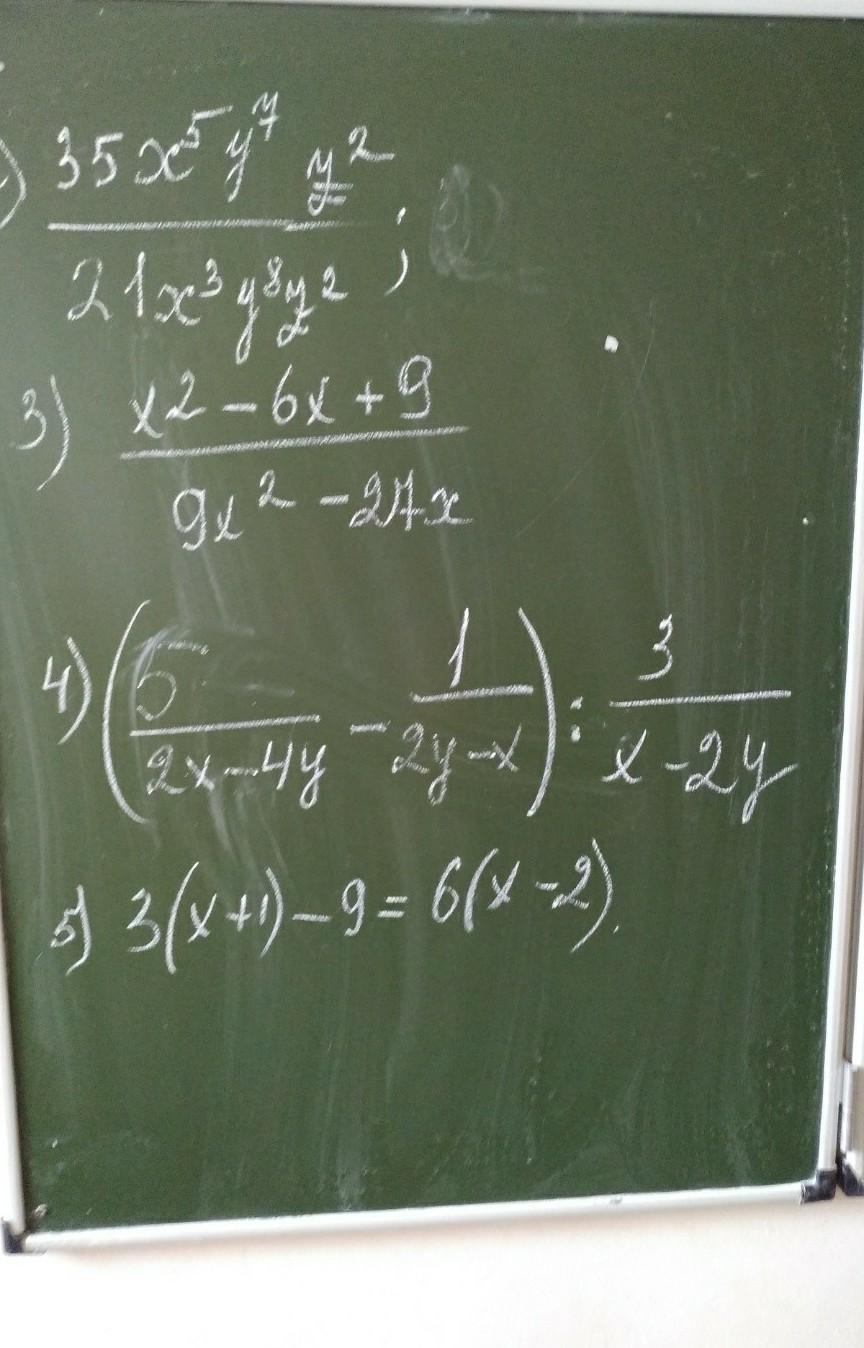 ) 35x⁵y⁷ y² / 21x³y⁸y² ;
3) x2 - 6x + 9 / 9x² - 27x
4) (5 / 2x - 4y - 1 / 2y - x) : 3 / x - 2y
5) 3(x+1) - 9 = 6(x - 2).